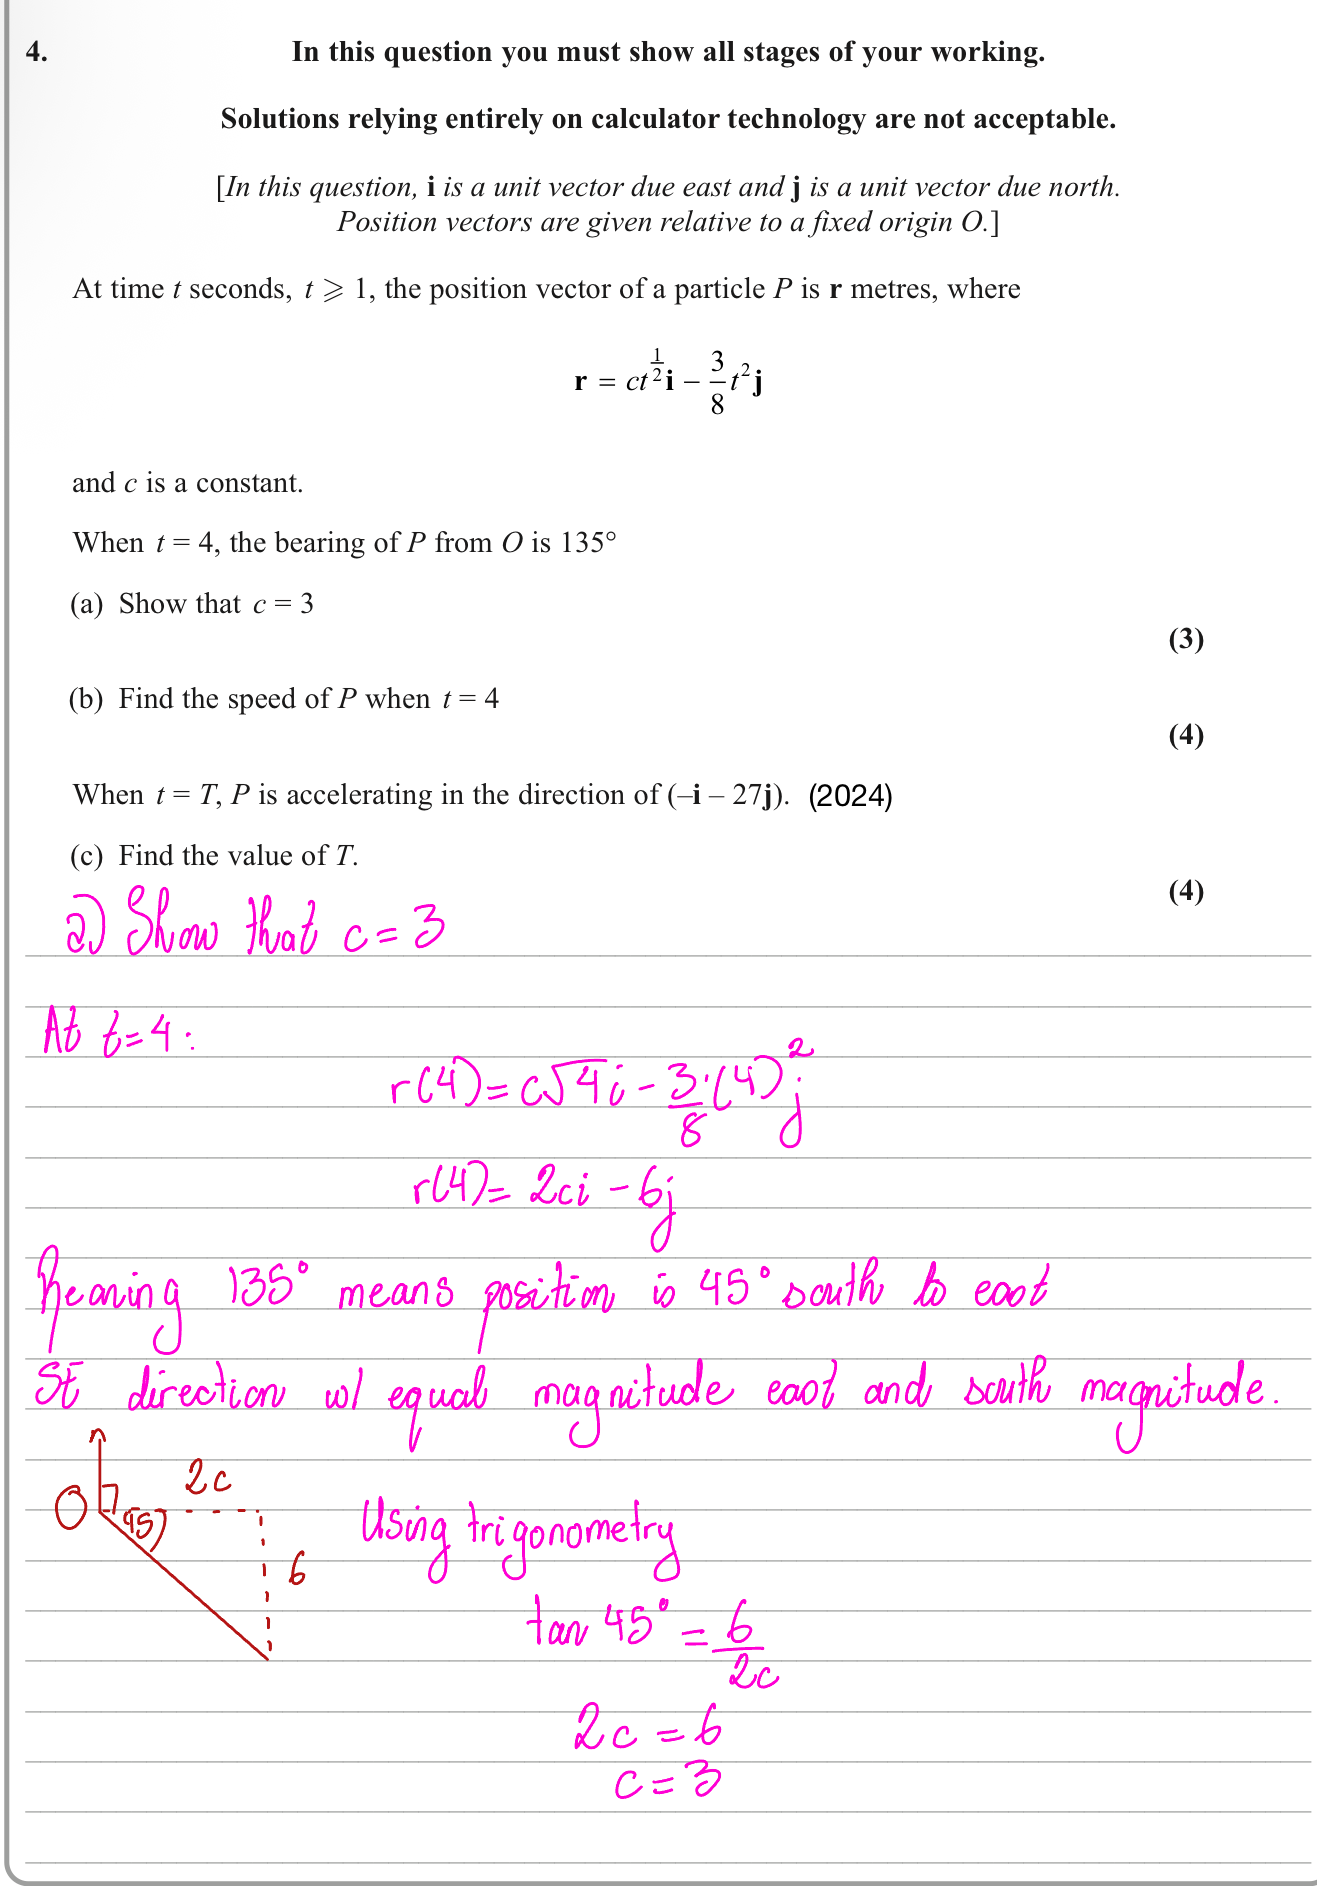 4. In this question you must show all stages of your working.
Solutions relying entirely on calculator technology are not acceptable.
[In this question, i is a unit vector due east and j is a unit vector due north.
Position vectors are given relative to a fixed origin O.]
At time t seconds, t ⩾ 1, the position vector of a particle P is r metres, where
r = ct^(1/2) i − 3/8 t² j
and c is a constant.
When t = 4, the bearing of P from O is 135°
(a) Show that c = 3
(3)
(b) Find the speed of P when t = 4
(4)
When t = T, P is accelerating in the direction of (–i – 27j). (2024)
(c) Find the value of T.
(4)
a) Show that c = 3
At t=4:
r(4) = c√4 i - 3/8 · (4)² j
r(4) = 2ci - 6j
Bearing 135° means position is 45° south to east
SE direction w/ equal magnitude east and south magnitude.
O 45 2c
6
Using trigonometry
tan 45° = 6/2c
2c = 6
c = 3